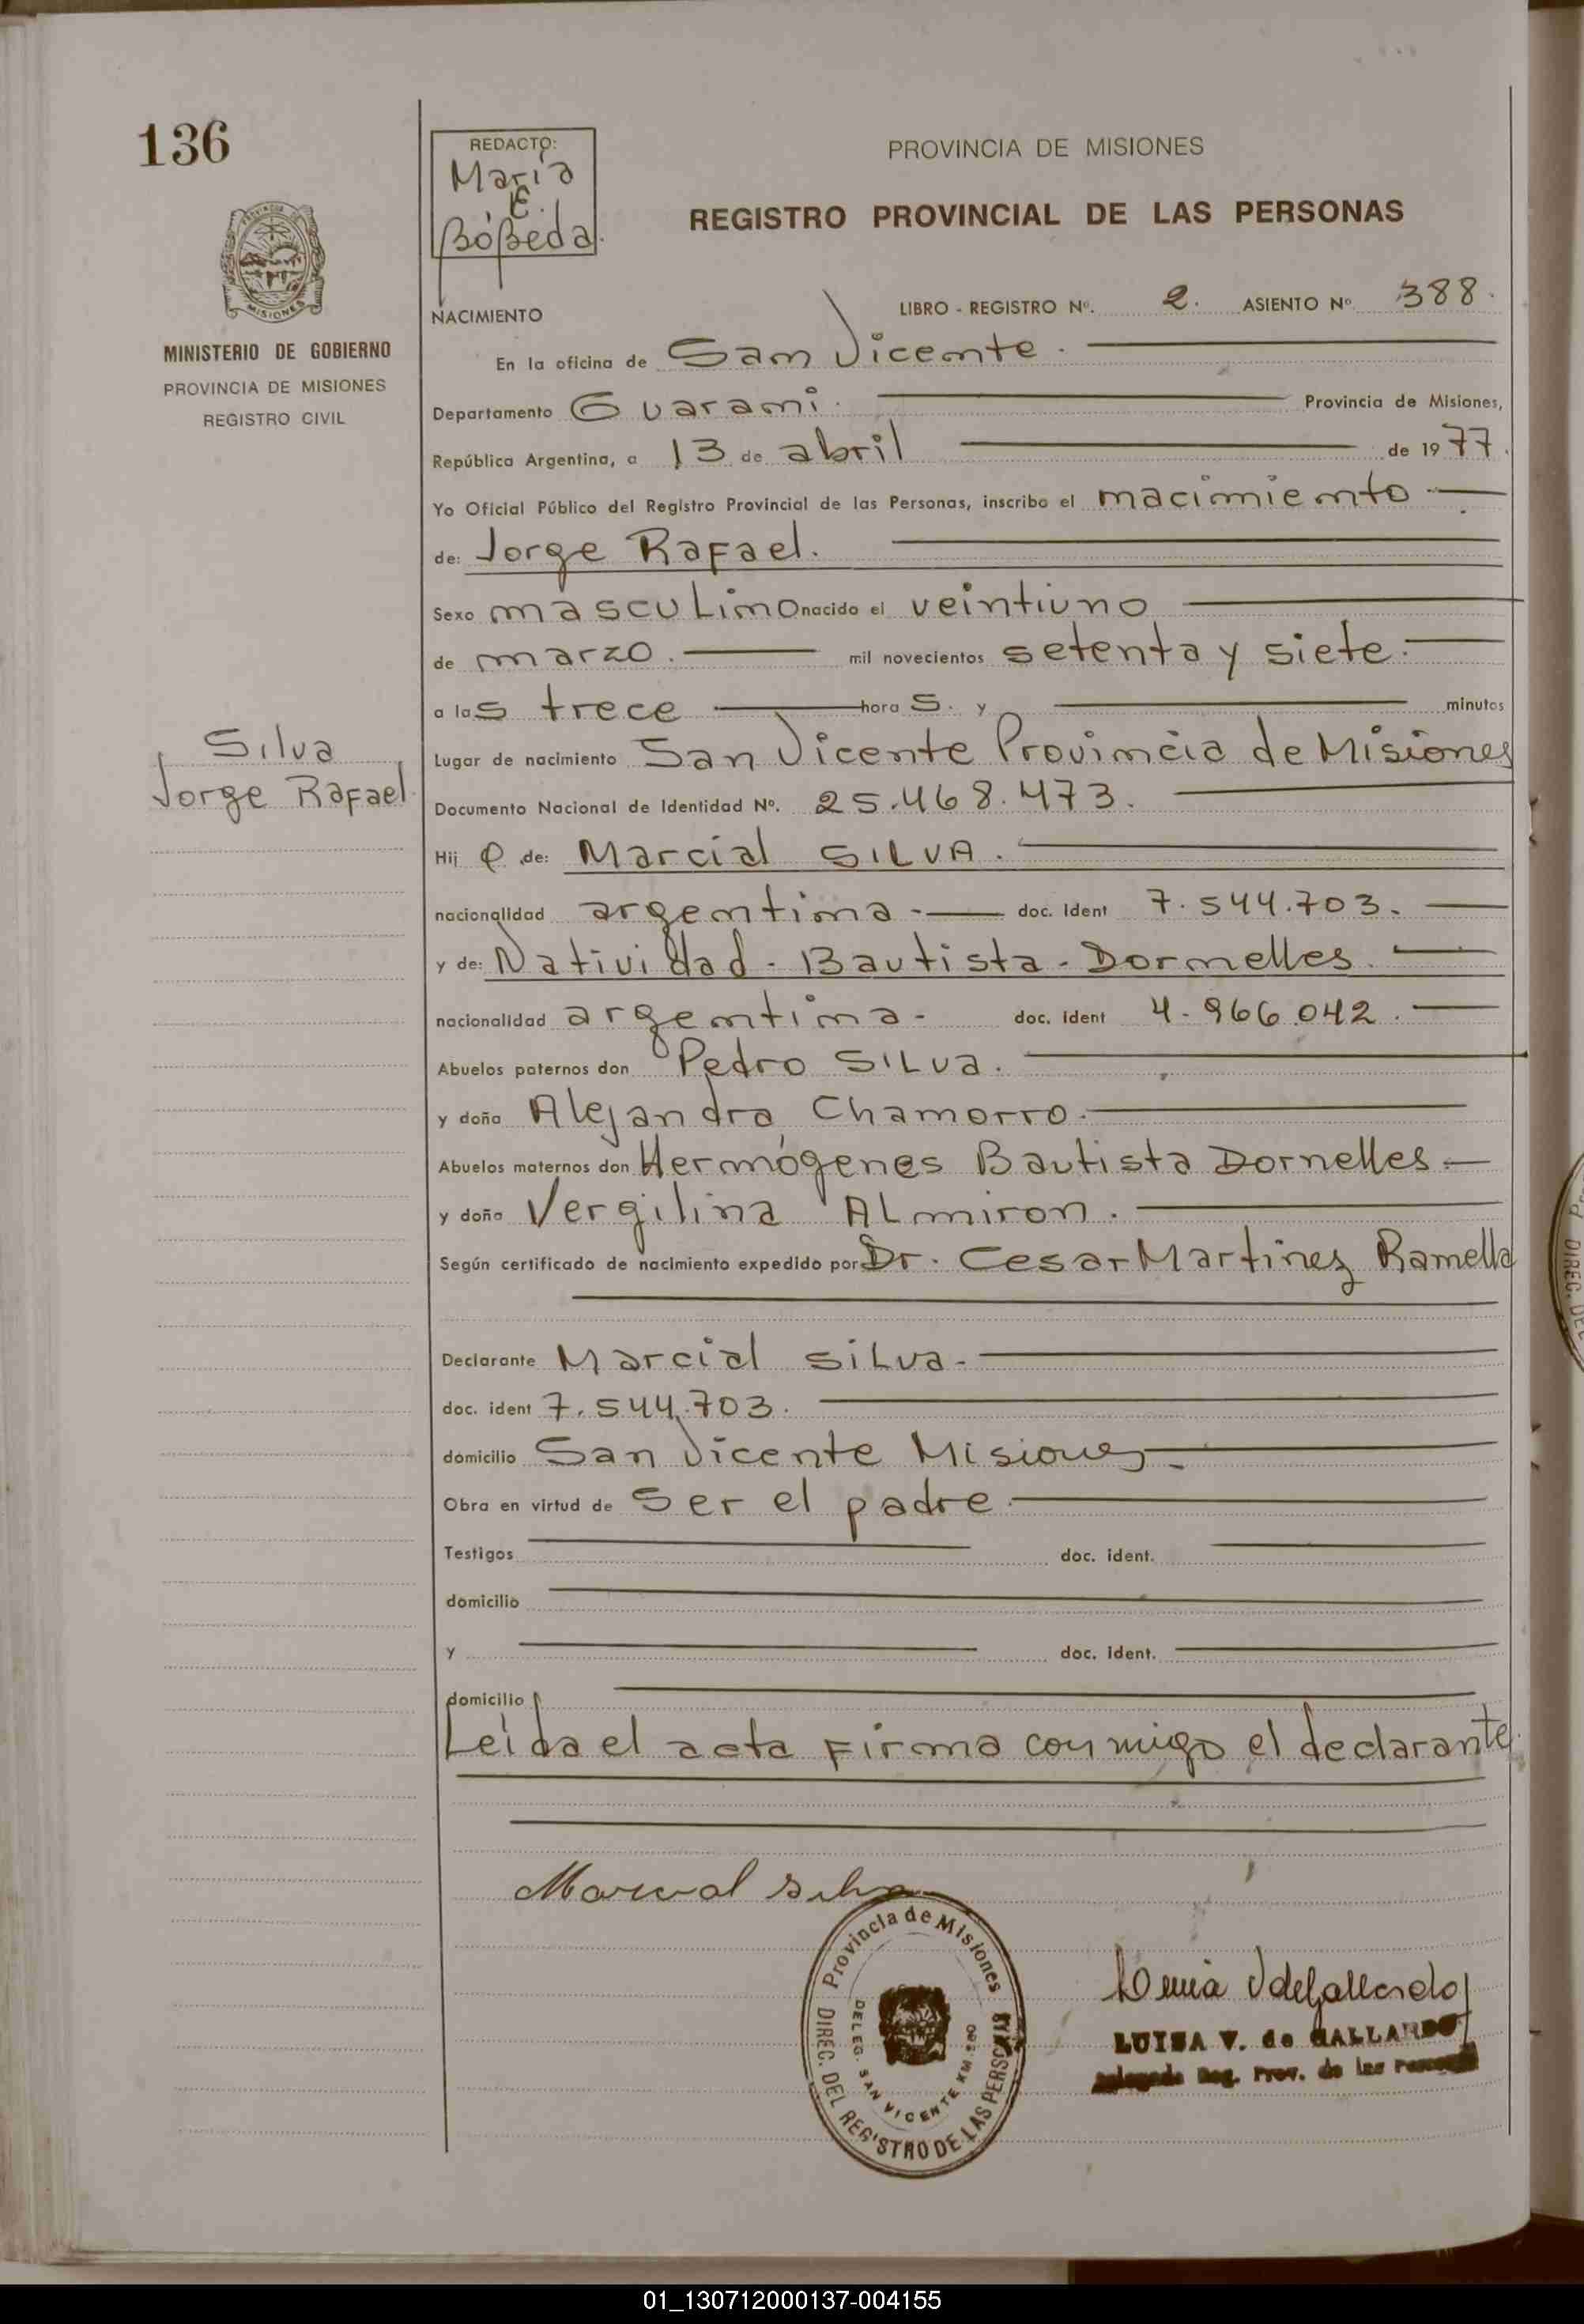 136
REDACTÓ:
María
E.
Bóbeda.
PROVINCIA DE MISIONES
REGISTRO PROVINCIAL DE LAS PERSONAS
MISIONES
MINISTERIO DE GOBIERNO
PROVINCIA DE MISIONES
REGISTRO CIVIL
NACIMIENTO
LIBRO - REGISTRO Nº. 2. ASIENTO Nº. 388.
En la oficina de San Vicente.
Departamento Guarani. Provincia de Misiones,
República Argentina, a 13 de abril de 1977.
Yo Oficial Público del Registro Provincial de las Personas, inscribo el nacimiento
de: Jorge Rafael.
Sexo masculino nacido el veintiuno
de marzo. mil novecientos setenta y siete.
a las trece horas. y minutos
Silva
Jorge Rafael
Lugar de nacimiento San Vicente Provincia de Misiones
Documento Nacional de Identidad Nº. 25.468.473.
Hijo de: Marcial SILVA.
nacionalidad argentina. doc. ident 7.544.703.
y de: Natividad - Bautista - Dornelles.
nacionalidad argentina - doc. ident 4.966.042.
Abuelos paternos don Pedro SILVA.
y doña Alejandra Chamorro.
Abuelos maternos don Hermógenes Bautista Dornelles
y doña Vergilina ALmiron.
Según certificado de nacimiento expedido por Dr. Cesar Martinez Ramella
Declarante Marcial SiLva-
doc. ident 7.544.703.
domicilio San Vicente Misiones
Obra en virtud de ser el padre
Testigos doc. ident.
domicilio
y doc. ident.
domicilio
Leida el acta firma conmigo el declarante.
Marcial Silva
Provincia de Misiones
DIREC. DEL REGISTRO DE LAS PERSONAS
DELEG. SAN VICENTE KM.
Luisa V de Gallardo
LUISA V. de GALLARDO
Delegada Reg. Prov. de las Personas
DIREC. DEL
01_130712000137-004155